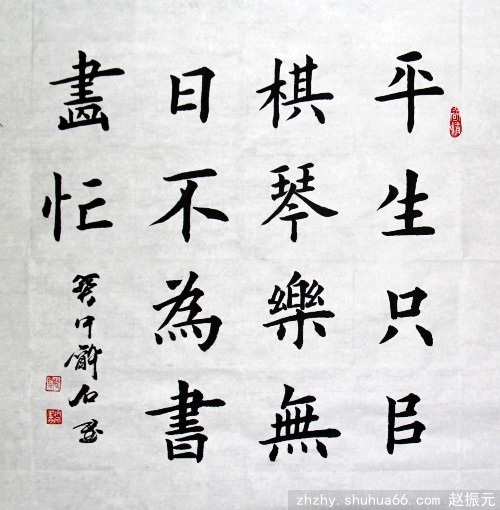 平生只㠯
棋琴樂無
日不為書
畫忙
zhzhy.shuhua66.com 赵振元